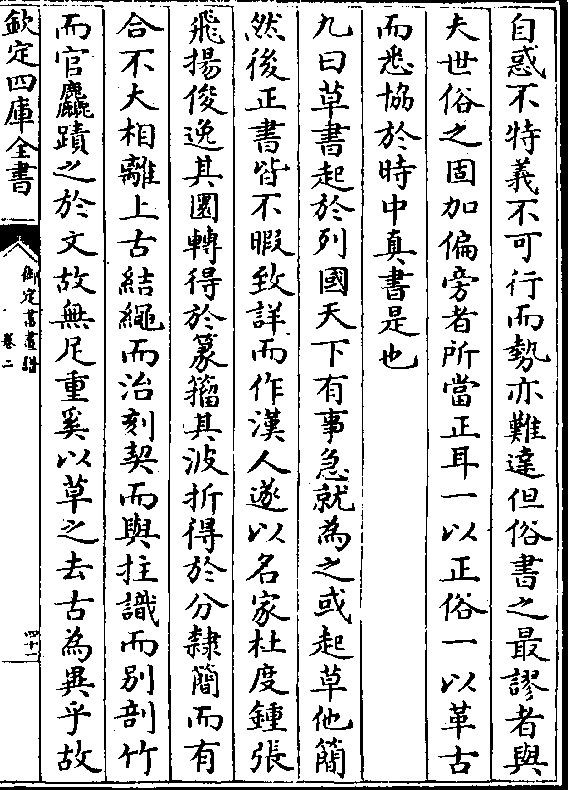 自惑不特義不可行而勢亦難達但俗書之最謬者與
夫世俗之固加偏旁者所當正耳一以正俗一以革古
而悉協於時中真書是也
九曰草書起於列國天下有事急就為之或起草他簡
然後正書皆不暇致詳而作漢人遂以名家杜度鍾張
飛揚俊逸其圜轉得於篆籀其波折得於分隸簡而有
合不大相離上古結繩而治刻契而與拄識而别剖竹
而官麤蹟之於文故無足重奚以草之去古為異乎故
欽定四庫全書
御定書畫譜
卷二
四十一